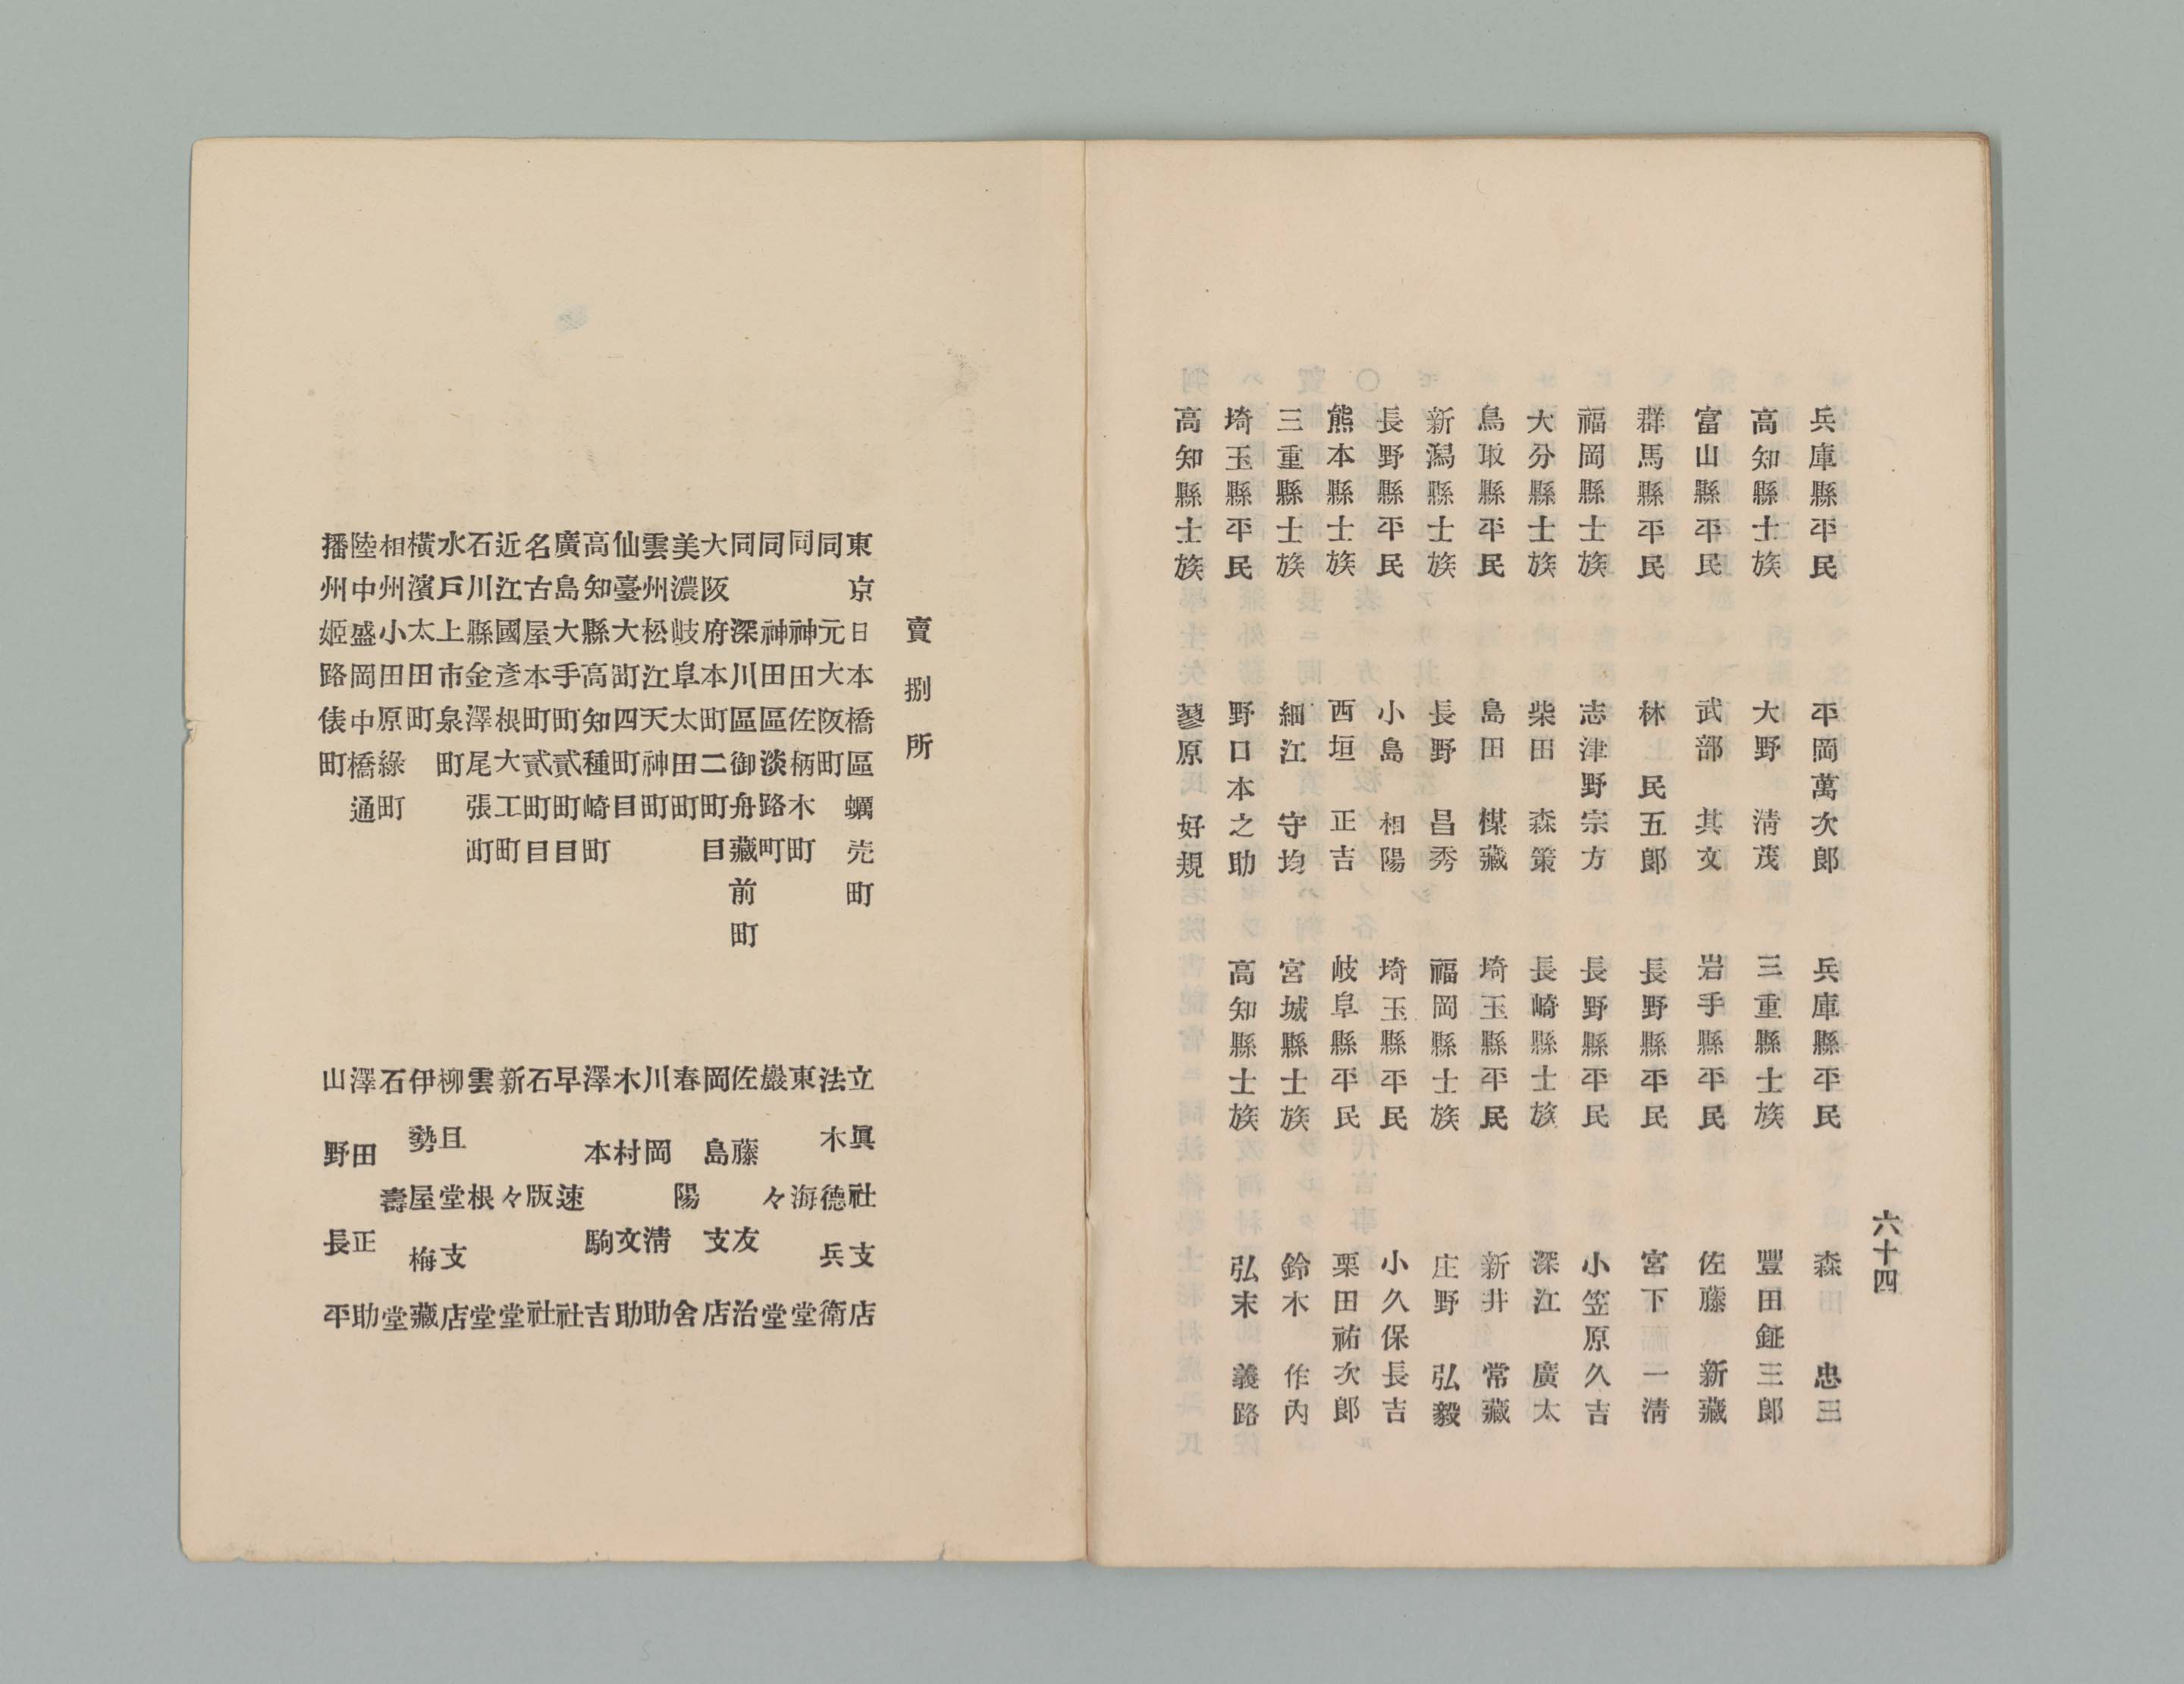 六十四
兵庫縣平民 平岡萬次郎 兵庫縣平民 森田忠三
高知縣士族 大野淸茂 三重縣士族 豐田鉦三郎
富山縣平民 武部其文 岩手縣平民 佐藤新藏
群馬縣平民 林民五郎 長野縣平民 宮下一淸
福岡縣士族 志津野宗方 長野縣平民 小笠原久吉
大分縣士族 柴田森策 長崎縣士族 深江廣太
鳥取縣平民 島田楳藏 埼玉縣平民 新井常藏
新潟縣士族 長野昌秀 福岡縣士族 庄野弘毅
長野縣平民 小島相陽 埼玉縣平民 小久保長吉
熊本縣士族 西垣正吉 岐阜縣平民 栗田祐次郎
三重縣士族 細江守均 宮城縣士族 鈴木作內
埼玉縣平民 野口本之助 高知縣士族 弘末義路
高知縣士族 蓼原好規
賣捌所
東京日本橋區蠣売町 立眞社支店
同 元大阪町 法木德兵衛
同 神田佐柄木町 東海堂
同 神田區淡路町 巖々堂
同 深川區御舟藏前町 佐藤友治
大阪府本町二町目 岡島支店
美濃岐阜太田町 春陽舍
雲州松江天神町 川岡淸助
仙臺大町四町目 木村文助
高知縣高知種崎町 澤本駒吉
廣島大手町貳町目 早速社
名古屋本町貳町目 石版社
近江國彥根大工町 新々堂
石川縣金澤尾張町 雲根堂
水戶上市泉町 柳旦堂支店
橫濱太田町 伊勢屋梅藏
相州小田原綠町 石壽堂
陸中盛岡中橋通 澤田正助
播州姬路俵町 山野長平